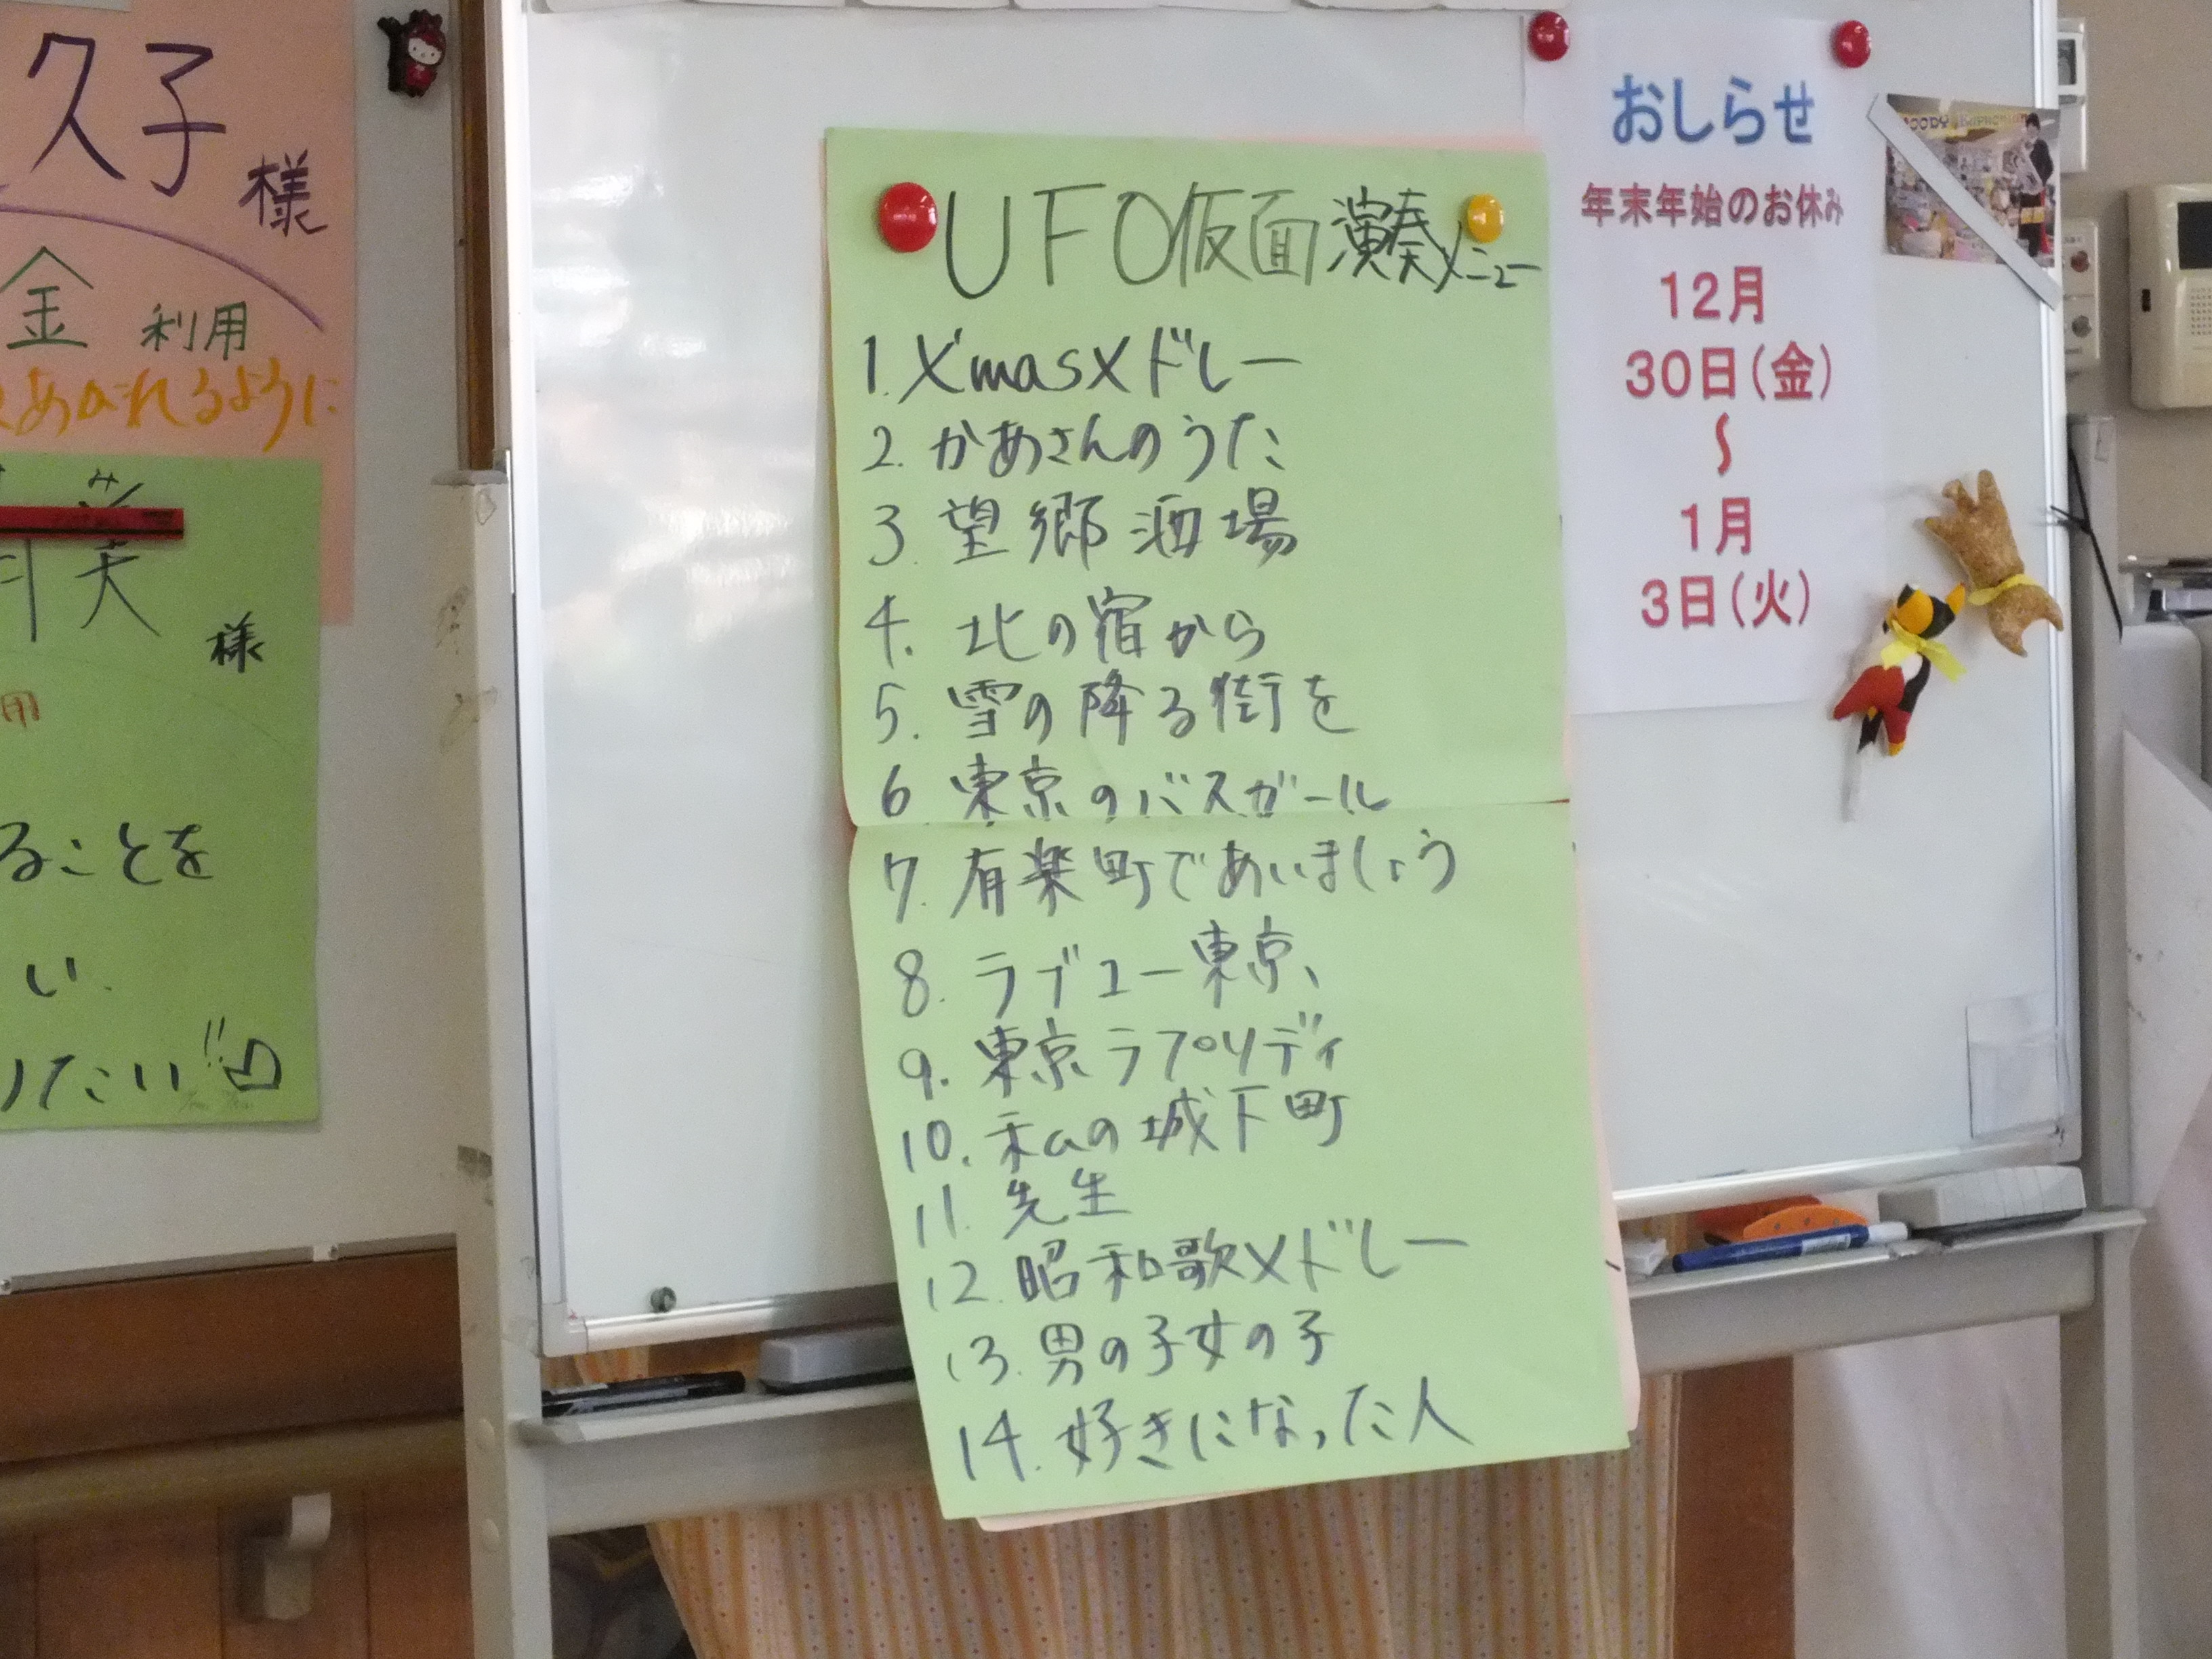 久子
様
金 利用
あがれるように
み
美
様
用
ることを
い.
りたい!!
UFO仮面演奏メニュー
1. X'masメドレー
2. かあさんのうた
3. 望郷酒場
4. 北の宿から
5. 雪の降る街を
6. 東京のバスガール
7. 有楽町であいましょう
8. ラブユー東京、
9. 東京ラプソディ
10. 私の城下町
11. 先生
12. 昭和歌メドレー
13. 男の子女の子
14. 好きになった人
おしらせ
年末年始のお休み
12月
30日(金)
〜
1月
3日(火)